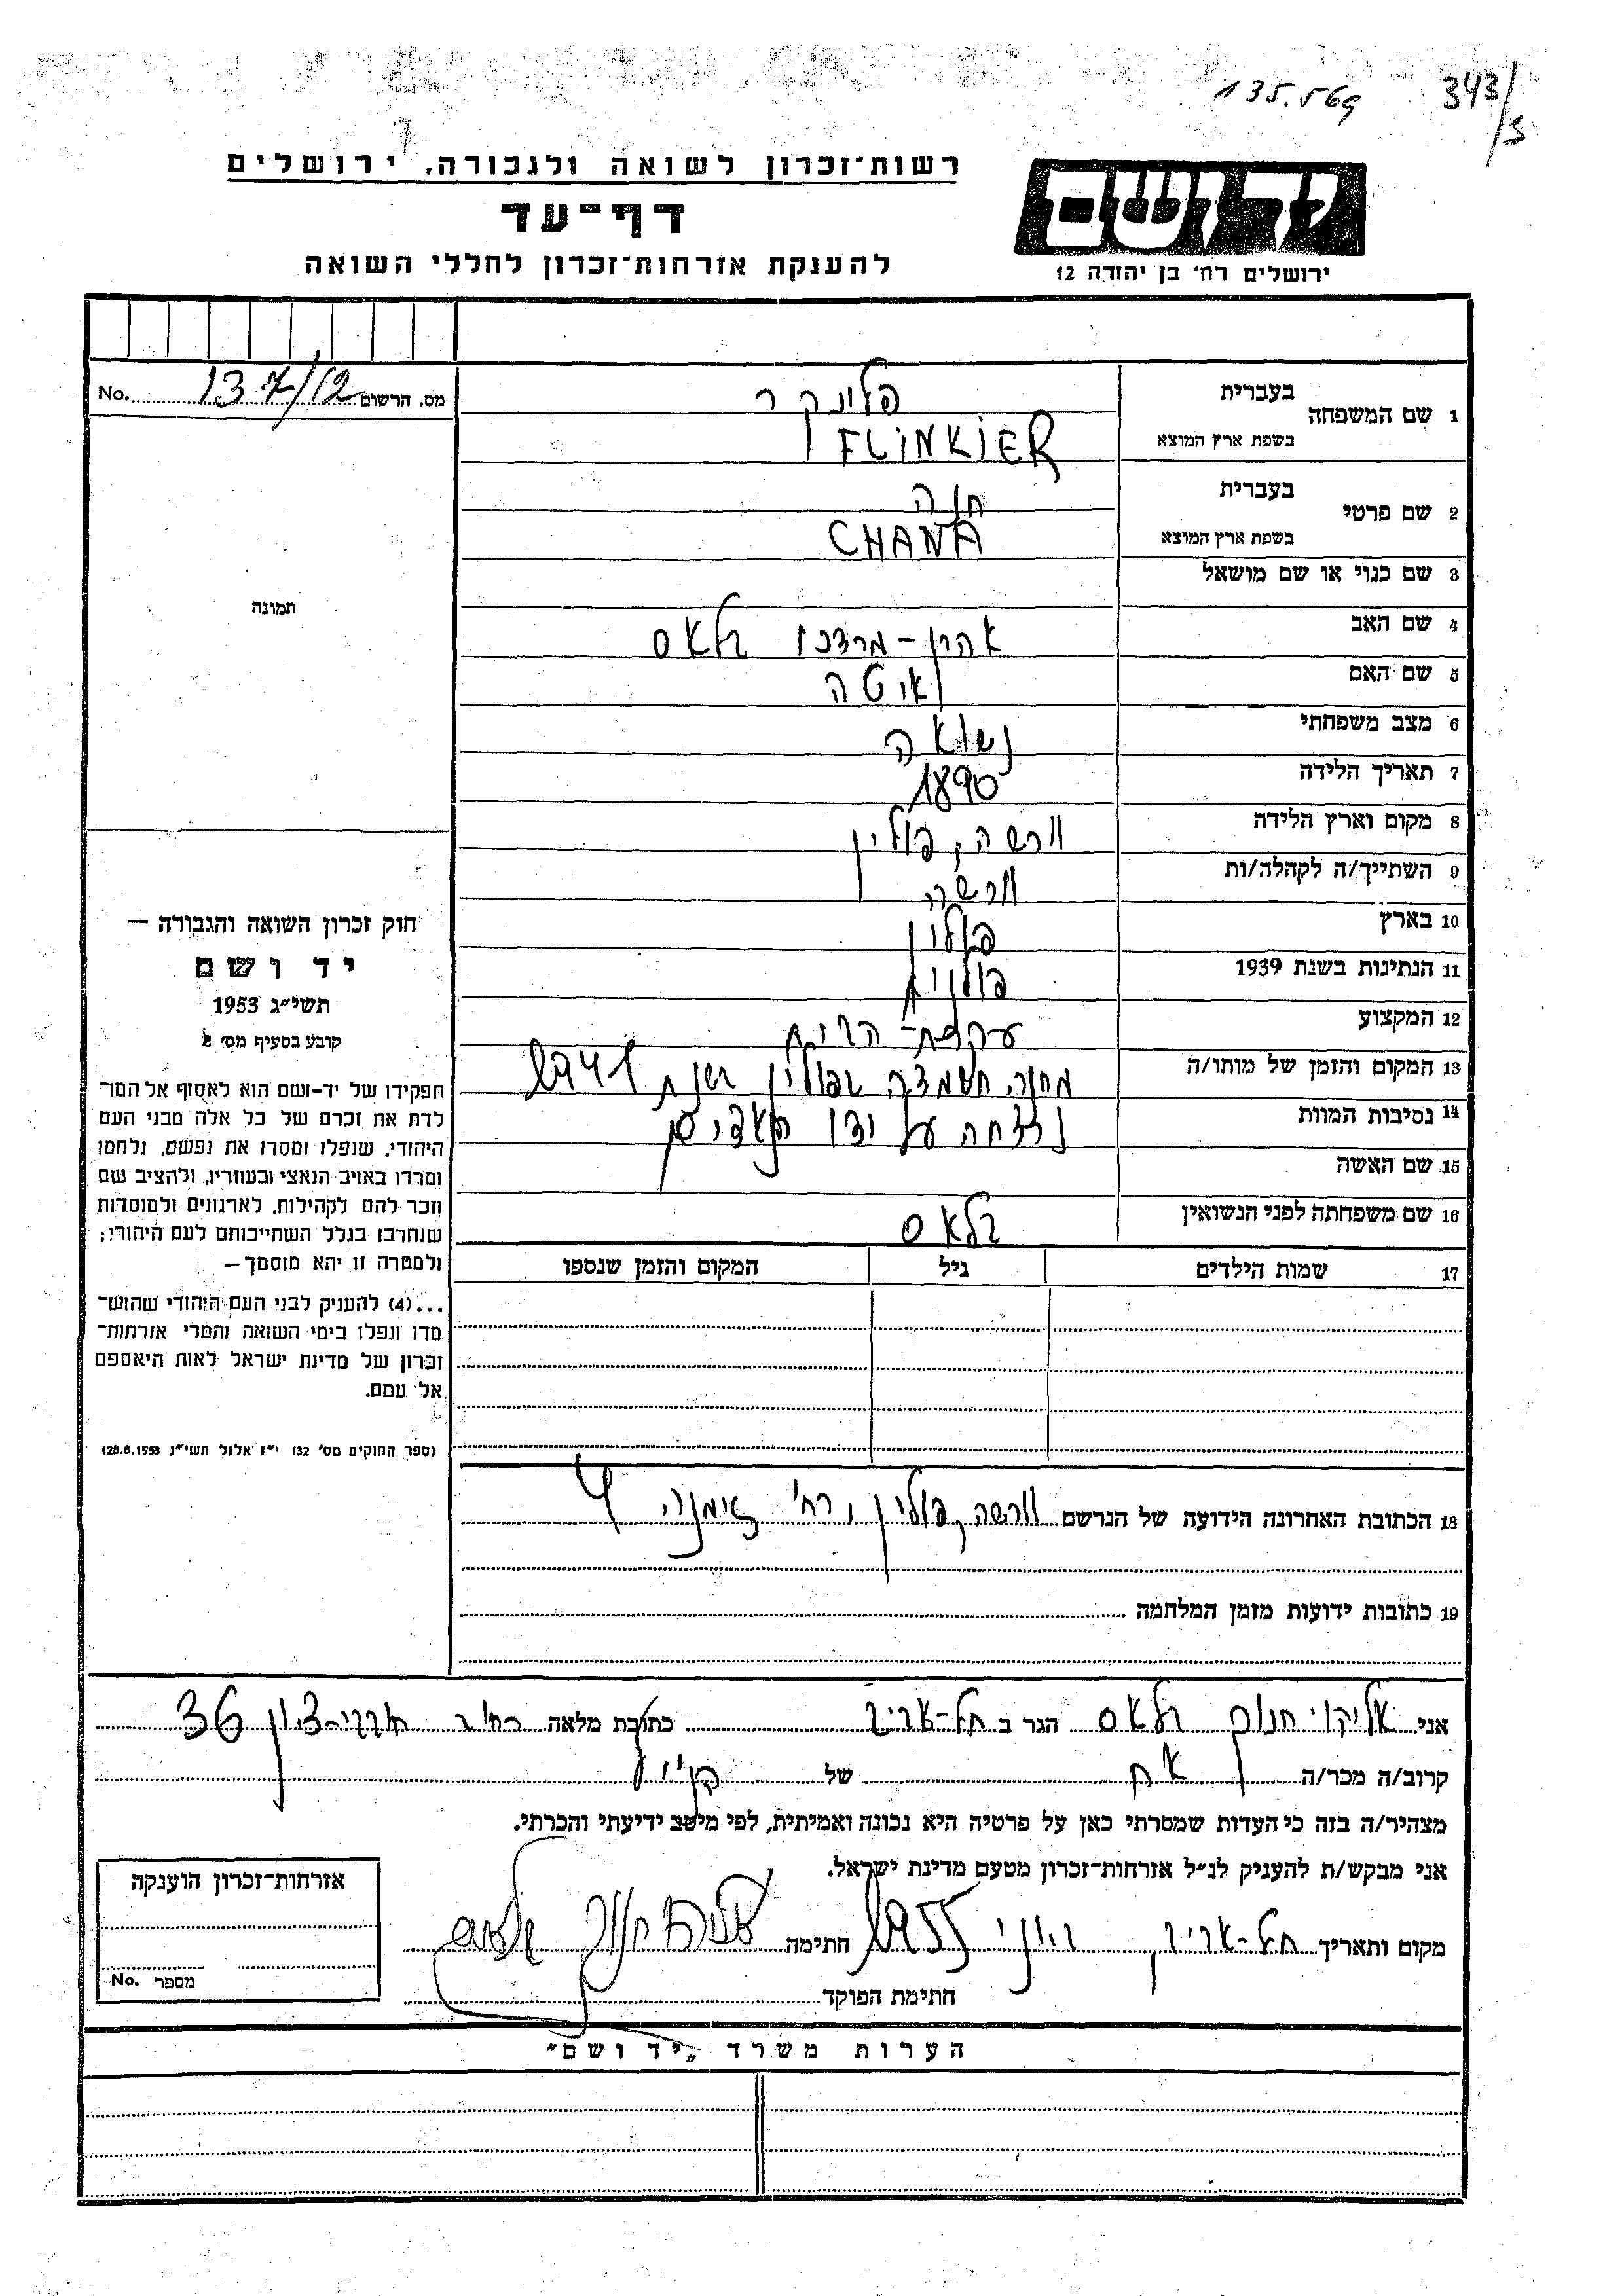 135.569
343/S
רשות־זכרון לשואה ולגבורה, ירושלים
דף־עד
להענקת אזרחות־זכרון לחללי השואה
יד ושם
ירושלים רח' בן יהודה 12
מס. הרשום 137/12 No.
תמונה
1 שם המשפחה בעברית פלינקר
בשפת ארץ המוצא FLINKIER
2 שם פרטי בעברית חנה
בשפת ארץ המוצא CHANA
3 שם כנוי או שם מושאל
4 שם האב אהרן-מרדכי גלאס
5 שם האם איטה
6 מצב משפחתי נשואה
7 תאריך הלידה 1890
8 מקום וארץ הלידה וורשה, פולין
9 השתייך/ה לקהלה/ות וורשה
10 בארץ פולין
11 הנתינות בשנת 1939 פולנית
12 המקצוע עקרת-הבית
13 המקום והזמן של מותו/ה מחנה השמדה בפולין בשנת
14 נסיבות המוות נרצחה על ידי הנאצים
15 שם האשה
16 שם משפחתה לפני הנשואין גלאס
17 שמות הילדים גיל המקום והזמן שנספו
18 הכתובת האחרונה הידועה של הנרשם וורשה, פולין, רח'
19 כתובות ידועות מזמן המלחמה
חוק זכרון השואה והגבורה —
יד ושם
תשי״ג 1953
קובע בסעיף מס' 2
תפקידו של יד-ושם הוא לאסוף אל המו־
לדת את זכרם של כל אלה מבני העם
היהודי, שנפלו ומסרו את נפשם, נלחמו
ומרדו באויב הנאצי ובעוזריו, ולהציב שם
וזכר להם לקהילות, לארגונים ולמוסדות
שנחרבו בגלל השתייכותם לעם היהודי;
ולמטרה זו יהא מוסמך —
...(4) להעניק לבני העם היהודי שהוש־
מדו ונפלו בימי השואה והמרי אזרחות־
זכרון של מדינת ישראל לאות היאספם
אל עמם.
(ספר החוקים מס' 132 י״ז אלול תשי״ג 28.8.1953)
אני חנוך גלאס הגר ב תל-אביב כתובת מלאה רחוב חובבי-ציון 36
קרוב/ה מכר/ה אח של
מצהיר/ה בזה כי העדות שמסרתי כאן על פרטיה היא נכונה ואמיתית, לפי מיטב ידיעתי והכרתי.
אני מבקש/ת להעניק לנ״ל אזרחות־זכרון מטעם מדינת ישראל.
מקום ותאריך תל-אביב, יוני 1955 חתימה
חתימת הפוקד
אזרחות־זכרון הוענקה
מספר No.
הערות משרד ״יד ושם״